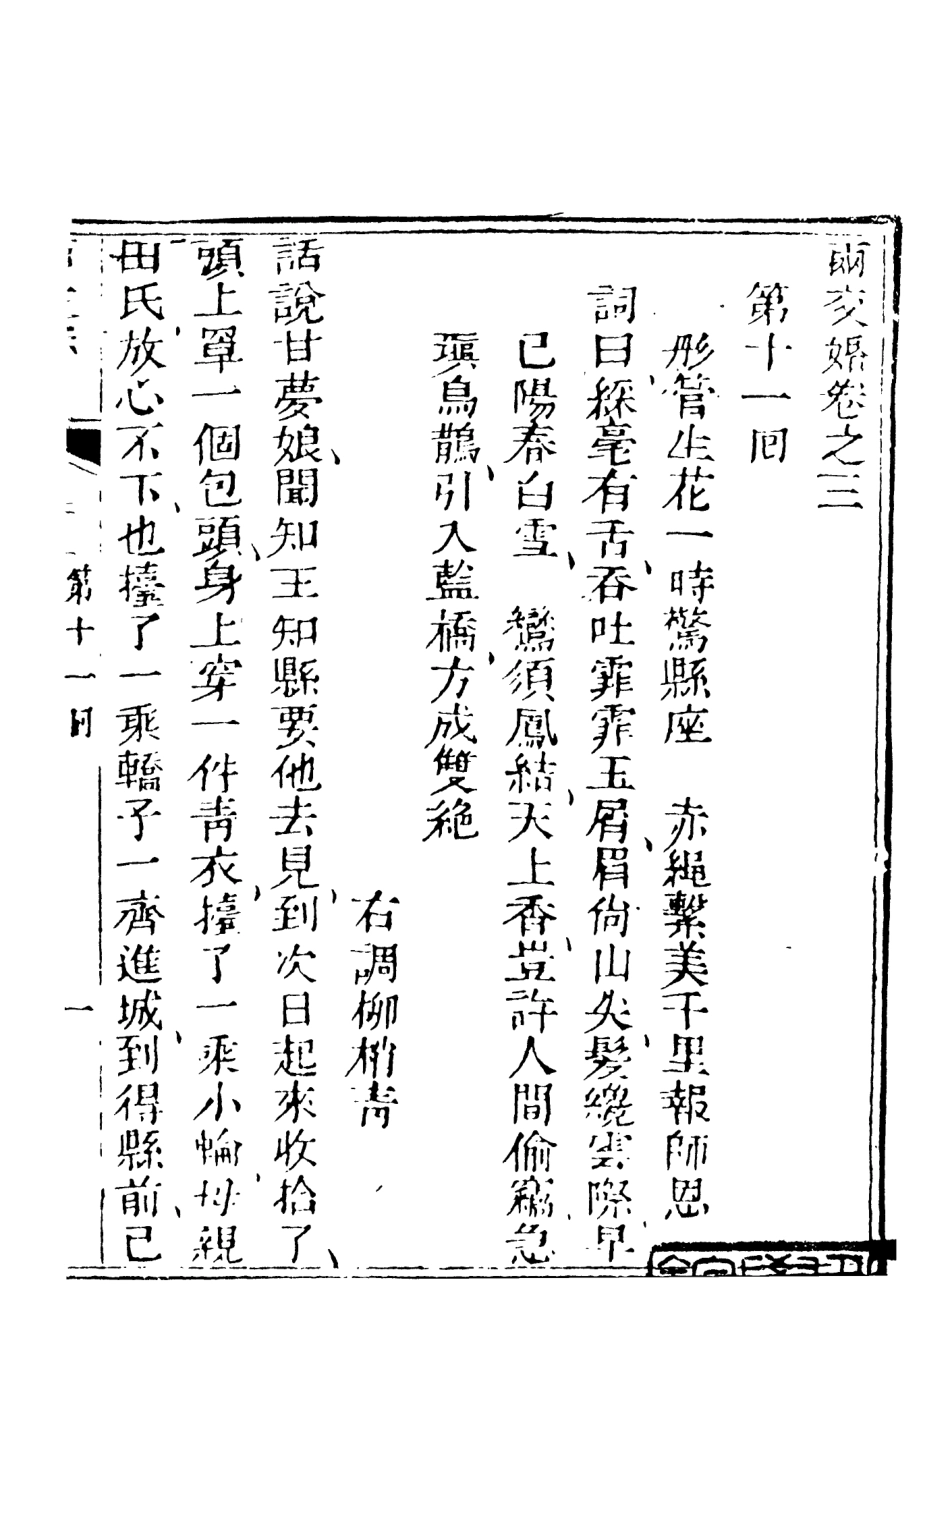 兩交婚卷之三
第十一回
彤管生花一時驚縣座　赤繩繫美千里報師恩
詞曰綵毫有舌吞吐霏霏玉屑眉尙山尖髮纔雲際早
已陽春白雪　鸞須鳳結天上香豈許人間偷竊急
塡烏鵲引入藍橋方成雙絶
右調柳梢靑
話說甘夢娘聞知王知縣要他去見到次日起來收拾了
頭上罩一個包頭身上穿一件靑衣擡了一乘小轎母親
田氏放心不下也擡了一乘轎子一齊進城到得縣前已
第十一囘
一